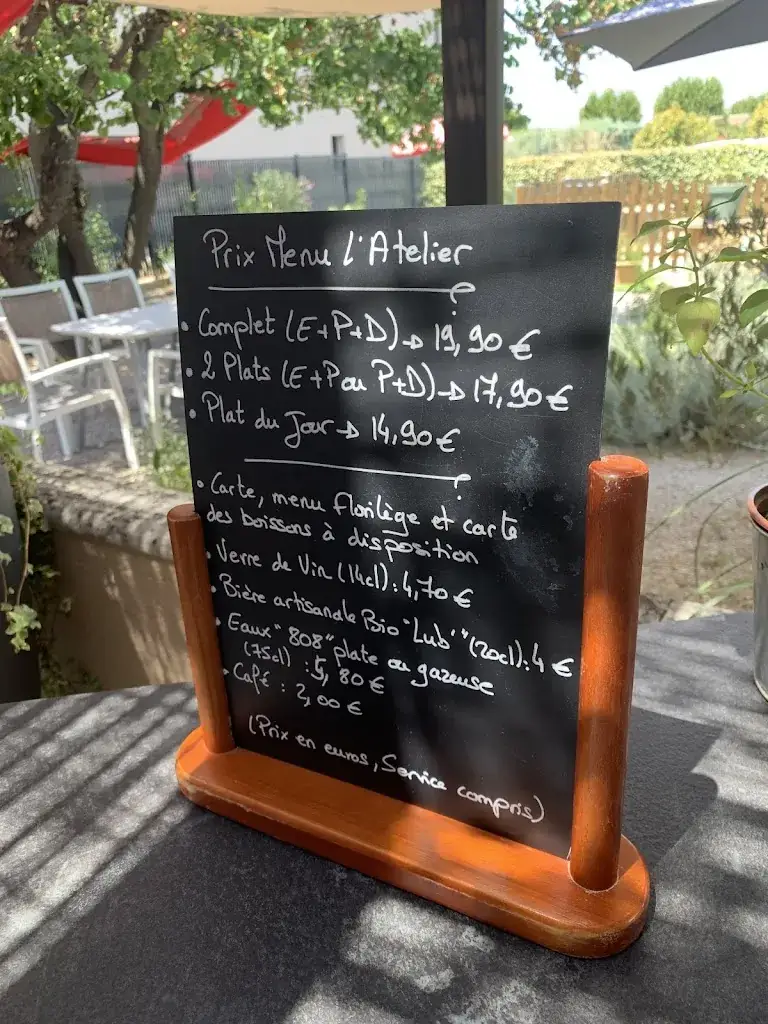 Prix Menu l'Atelier
• Complet (E+P+D) → 19,90 €
• 2 Plats (E+P ou P+D) → 17,90 €
• Plat du Jour → 14,90 €
• Carte, menu Florilège et carte
des boissons à disposition
• Verre de Vin (14cl) : 4,70 €
• Bière artisanale Bio "Lub'" (20cl) : 4 €
• Eaux "808" plate ou gazeuse
(75cl) : 5,80 €
• Café : 2,00 €
(Prix en euros, Service compris)